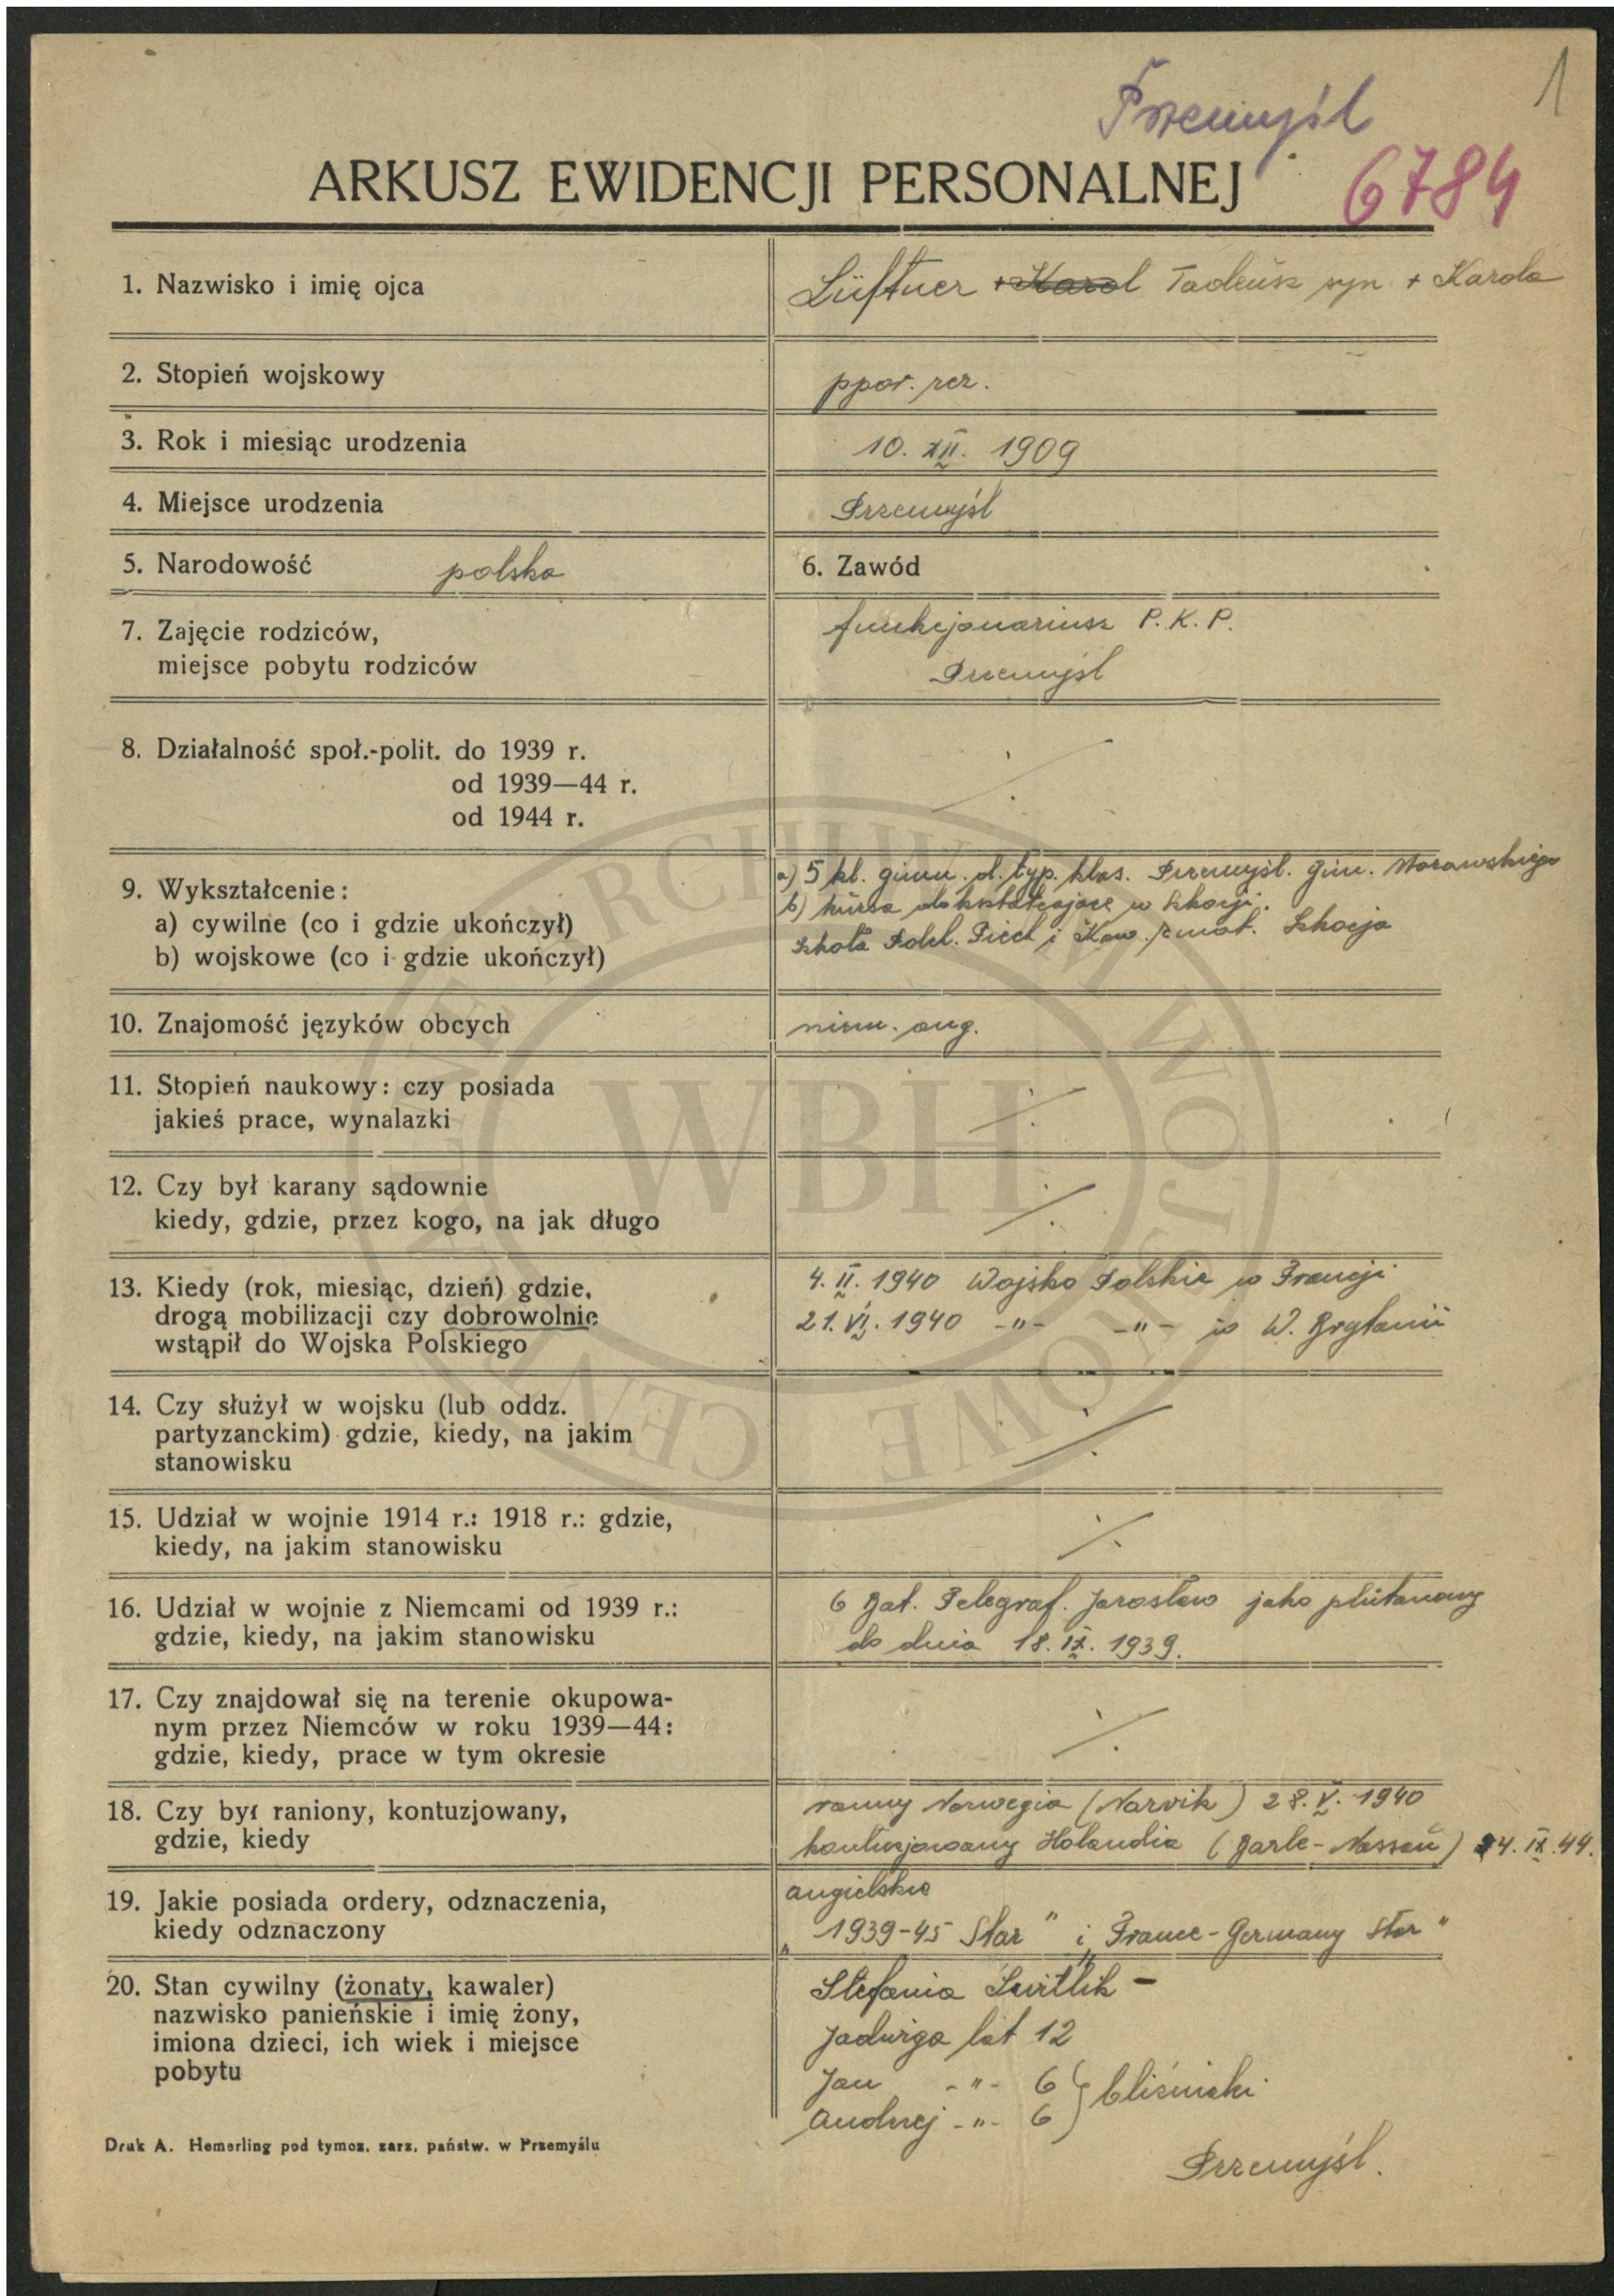 1
Przemyśl
ARKUSZ EWIDENCJI PERSONALNEJ
6784
1. Nazwisko i imię ojca
Lüftner + Karol Tadeusz syn + Karola
2. Stopień wojskowy
ppor. rez.
3. Rok i miesiąc urodzenia
10. XII. 1909
4. Miejsce urodzenia
Przemyśl
5. Narodowość polska
6. Zawód
7. Zajęcie rodziców,
miejsce pobytu rodziców
funkcjonariusz P. K. P.
Przemyśl
8. Działalność społ.-polit. do 1939 r.
od 1939—44 r.
od 1944 r.
9. Wykształcenie:
a) cywilne (co i gdzie ukończył)
b) wojskowe (co i gdzie ukończył)
a) 5 kl. gimn. d. typ. klas. Przemyśl. Gim. Morawskiego
b) kursa dokształcające w Szkocji.
Szkoła Podch. Piech i Kaw. zmot. Szkocja
10. Znajomość języków obcych
niem. ang.
11. Stopień naukowy: czy posiada
jakieś prace, wynalazki
12. Czy był karany sądownie
kiedy, gdzie, przez kogo, na jak długo
13. Kiedy (rok, miesiąc, dzień) gdzie,
drogą mobilizacji czy dobrowolnie
wstąpił do Wojska Polskiego
4. II. 1940 Wojsko Polskie w Francji
21. VI. 1940 -"- -"- w W. Brytanii
14. Czy służył w wojsku (lub oddz.
partyzanckim) gdzie, kiedy, na jakim
stanowisku
15. Udział w wojnie 1914 r.: 1918 r.: gdzie,
kiedy, na jakim stanowisku
16. Udział w wojnie z Niemcami od 1939 r.:
gdzie, kiedy, na jakim stanowisku
6 Bat. Telegraf. Jarosław jako plutonowy
do dnia 18. IX. 1939.
17. Czy znajdował się na terenie okupowa-
nym przez Niemców w roku 1939—44:
gdzie, kiedy, prace w tym okresie
18. Czy był raniony, kontuzjowany,
gdzie, kiedy
ranny Norwegia (Narvik) 28. V. 1940
kontuzjowany Holandia (Barle-Nassau) 4. IX. 44.
19. Jakie posiada ordery, odznaczenia,
kiedy odznaczony
angielskie
„1939-45 Star" i „France-Germany Star"
20. Stan cywilny (żonaty, kawaler)
nazwisko panieńskie i imię żony,
imiona dzieci, ich wiek i miejsce
pobytu
Stefania -
Jadwiga lat 12
Jan -"- 6
Andrzej -"- 6 } bliźniaki
Przemyśl.
Druk A. Hemerling pod tymcz. zarz. państw. w Przemyślu
CENTRALNE ARCHIWUM WOJSKOWE
WBH